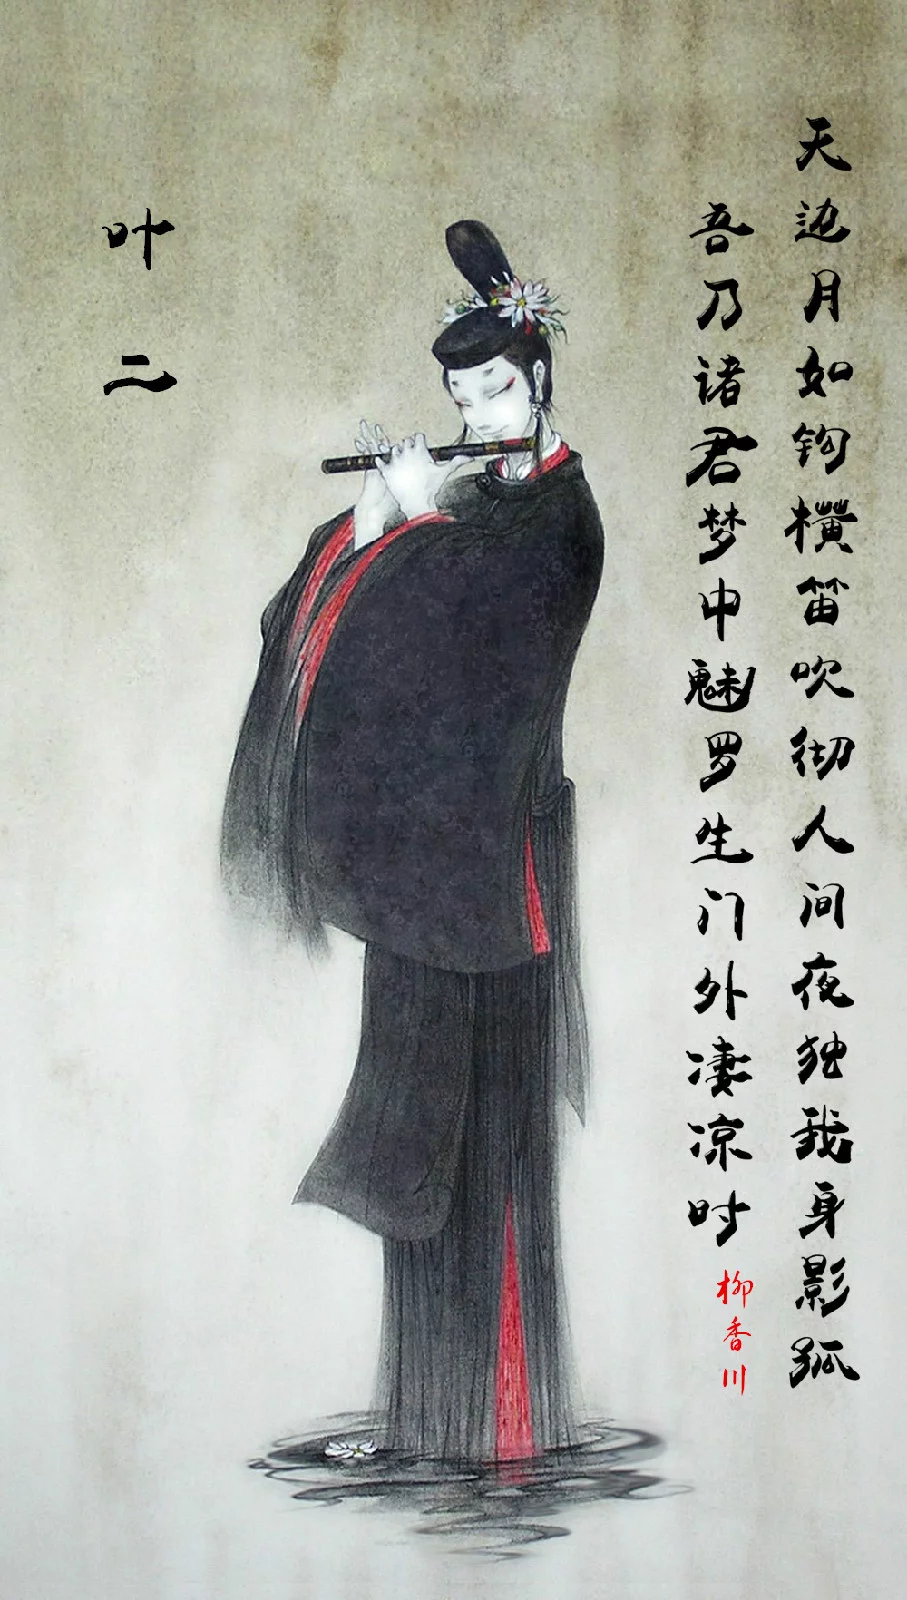 天边月如钩横笛吹彻人间夜独我身影孤
吾乃诸君梦中魅罗生门外凄凉时
柳香川
叶二